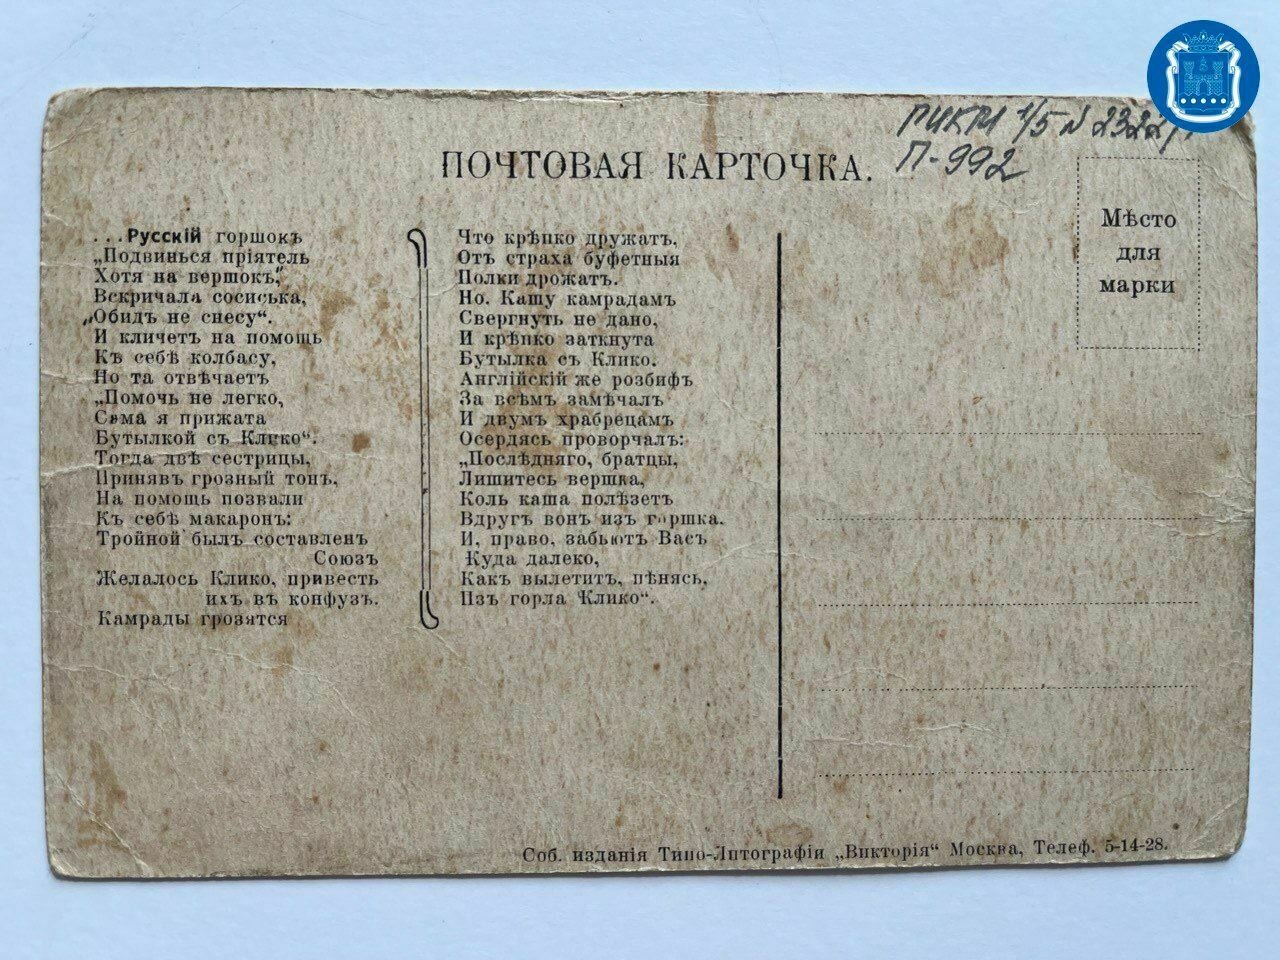 П-992
ПОЧТОВАЯ КАРТОЧКА.
...Русскій горшокъ
„Подвинься пріятель
Хотя на вершокъ,"
Вскричала сосиська,
„Обидъ не снесу“.
И кличетъ на помощь
Къ себѣ колбасу,
Но та отвѣчаетъ
„Помочь не легко,
Сама я прижата
Бутылкой съ Клико“.
Тогда двѣ сестрицы,
Принявъ грозный тонъ,
На помощь позвали
Къ себѣ макаронъ:
Тройной былъ составленъ
Союзъ
Желалось Клико, привесть
ихъ въ конфузъ.
Камрады грозятся
Что крѣпко дружатъ,
Отъ страха буфетныя
Полки дрожатъ.
Но. Кашу камрадамъ
Свергнуть не дано,
И крѣпко заткнута
Бутылка съ Клико.
Англійскій же розбифъ
За всѣмъ замѣчалъ
И двумъ храбрецамъ
Осердясь проворчалъ:
„Послѣдняго, братцы,
Лишитесь вершка,
Коль каша полѣзетъ
Вдругъ вонъ изъ горшка.
И, право, забьютъ Васъ
Куда далеко,
Какъ вылетитъ, пѣнясь,
Изъ горла Клико“.
Мѣсто
для
марки
Соб. изданія Типо-Литографіи „Викторія“ Москва, Телеф. 5-14-28.